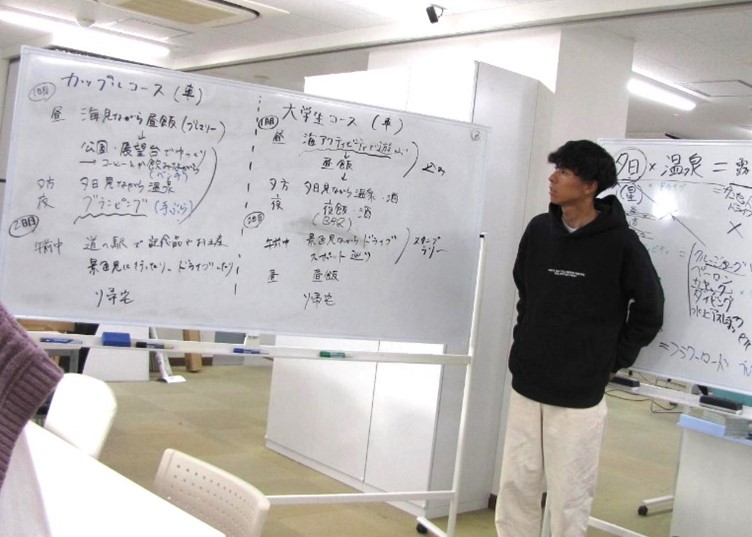 カップルコース (車)
1日目
昼 海見ながら昼飯
公園・展望台でゆっくり
→コーヒーとか飲みながら
(ベンチ)
夕方 夕日見ながら温泉
夜 グランピング (手ぶら)
2日目
午前中 道の駅で記念品やお土産
景色見に行ったり、ドライブしたり
帰宅
大学生コース (車)
1日目
昼 海アクティビティで遊ぶ
昼飯
夕方 夕日見ながら温泉・酒
夜 夜飯・酒
(BBQ)
2日目
午前中 景色見ながらドライブ
スポット巡り
スタンプ
ラリー
昼 昼飯
帰宅
夕日×温泉=
(星)
クルージング
バーロン
ダイビング
=フラワーロード